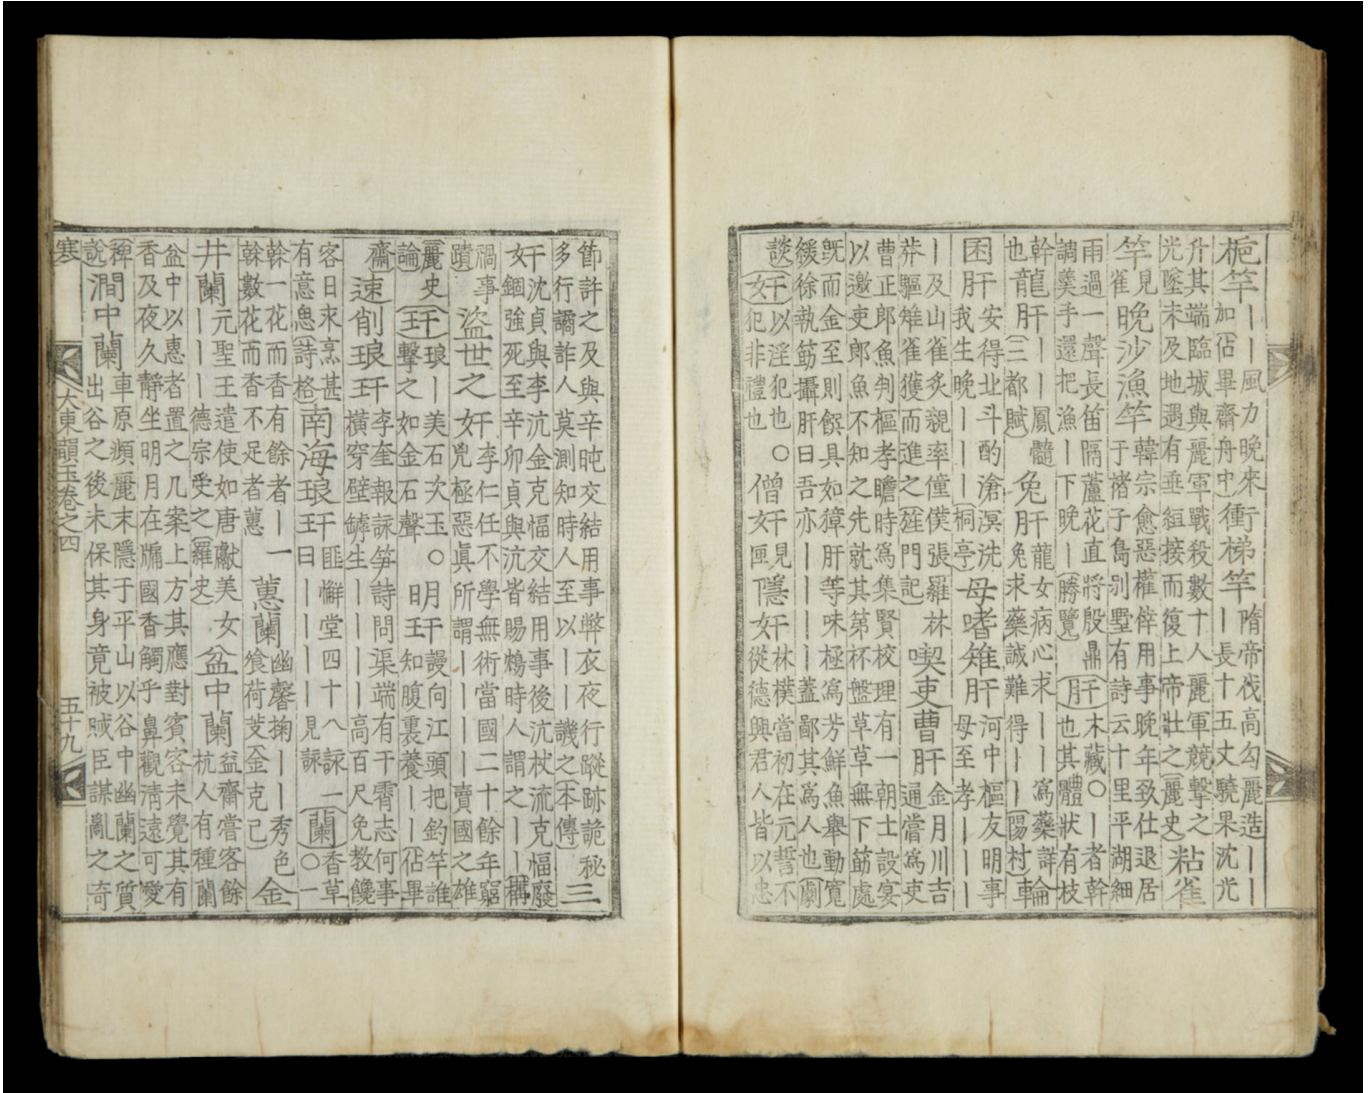 梔竿ーー風力晚來加佔畢齋舟中衝梯竿隋帝伐高勾麗造ーーー長十五丈驍果沈光
升其端臨城與麗軍戰殺數十人麗軍競擊之
光墜未及地遇有垂絙接而復上帝壯之麗史粘雀
竿見雀晚沙漁竿韓宗愈惡權倖用事晚年致仕退居于楮子島別墅有詩云十里平湖細
雨過一聲長笛隔蘆花直將殷鼎調羹手還把漁ー下晚ー勝覽肝木藏○ー者幹也其體狀有枝
幹也龍肝ーー鳳髓三都賦兔肝龍女病心求ーー爲藥詳論兔求藥誠難得ーー陽村車
困肝安得北斗酌滄溟洗我生晚ーーー桐亭母嗜雉肝河中樞友明事母至孝ーーー
ー及山雀炙親率僮僕張羅林莽驅雉雀獲而進之筳門記喫吏曹肝金月川吉通嘗爲吏
曹正郎魚判樞孝瞻時爲集賢校理有一朝士設宴
以邀吏郎魚不知之先就其第杯盤草草無下筯處
旣而金至則饌具如獐肝等味極爲芳鮮魚舉動寬
緩徐執筯攝肝曰吾亦ーーーー蓋鄙其爲人也劇
談奸以淫犯也○犯非禮也僧奸見匿隱奸林樸當初在元誓不從德興君人皆以忠
節許之及與辛旽交結用事弊衣夜行蹤跡詭秘
多行譎詐人莫測知時人至以ーー譏之本傳三
奸沈貞與李沆金克愊交結用事後沆杖流克愊廢錮強死至辛卯貞與沆皆賜鴆時人謂之ーー
禍事蹟盜世之奸李仁任不學無術當國二十餘年窮兇極惡眞所謂ーーーー賣國之雄
麗史論玕琅ー美石次玉○擊之如金石聲明玕謾向江頭把釣竿誰知腹裏養ーー佔畢
齋速削琅玕李奎報詠筍詩問渠端有干霄志何事橫穿壁罅生ーーーー高百尺免教饞
客日來烹甚有意思詩格南海琅玕匪懈堂四十八詠一曰ーーーー見詠蘭香草○一
榦一花而香有餘者ー一榦數花而香不足者蕙蕙蘭幽馨掬ーー秀色飱荷芰金克己金
井蘭元聖王遣使如唐獻美女ーーー德宗受之羅史盆中蘭益齋嘗客餘杭人有種蘭
盆中以惠者置之几案上方其應對賓客未覺其有
香及夜久靜坐明月在牖國香觸乎鼻觀淸遠可愛
稗說澗中蘭車原頫麗末隱于平山以谷中幽蘭之質出谷之後未保其身竟被賊臣謀亂之奇
寒 大東韻玉卷之四 五十九